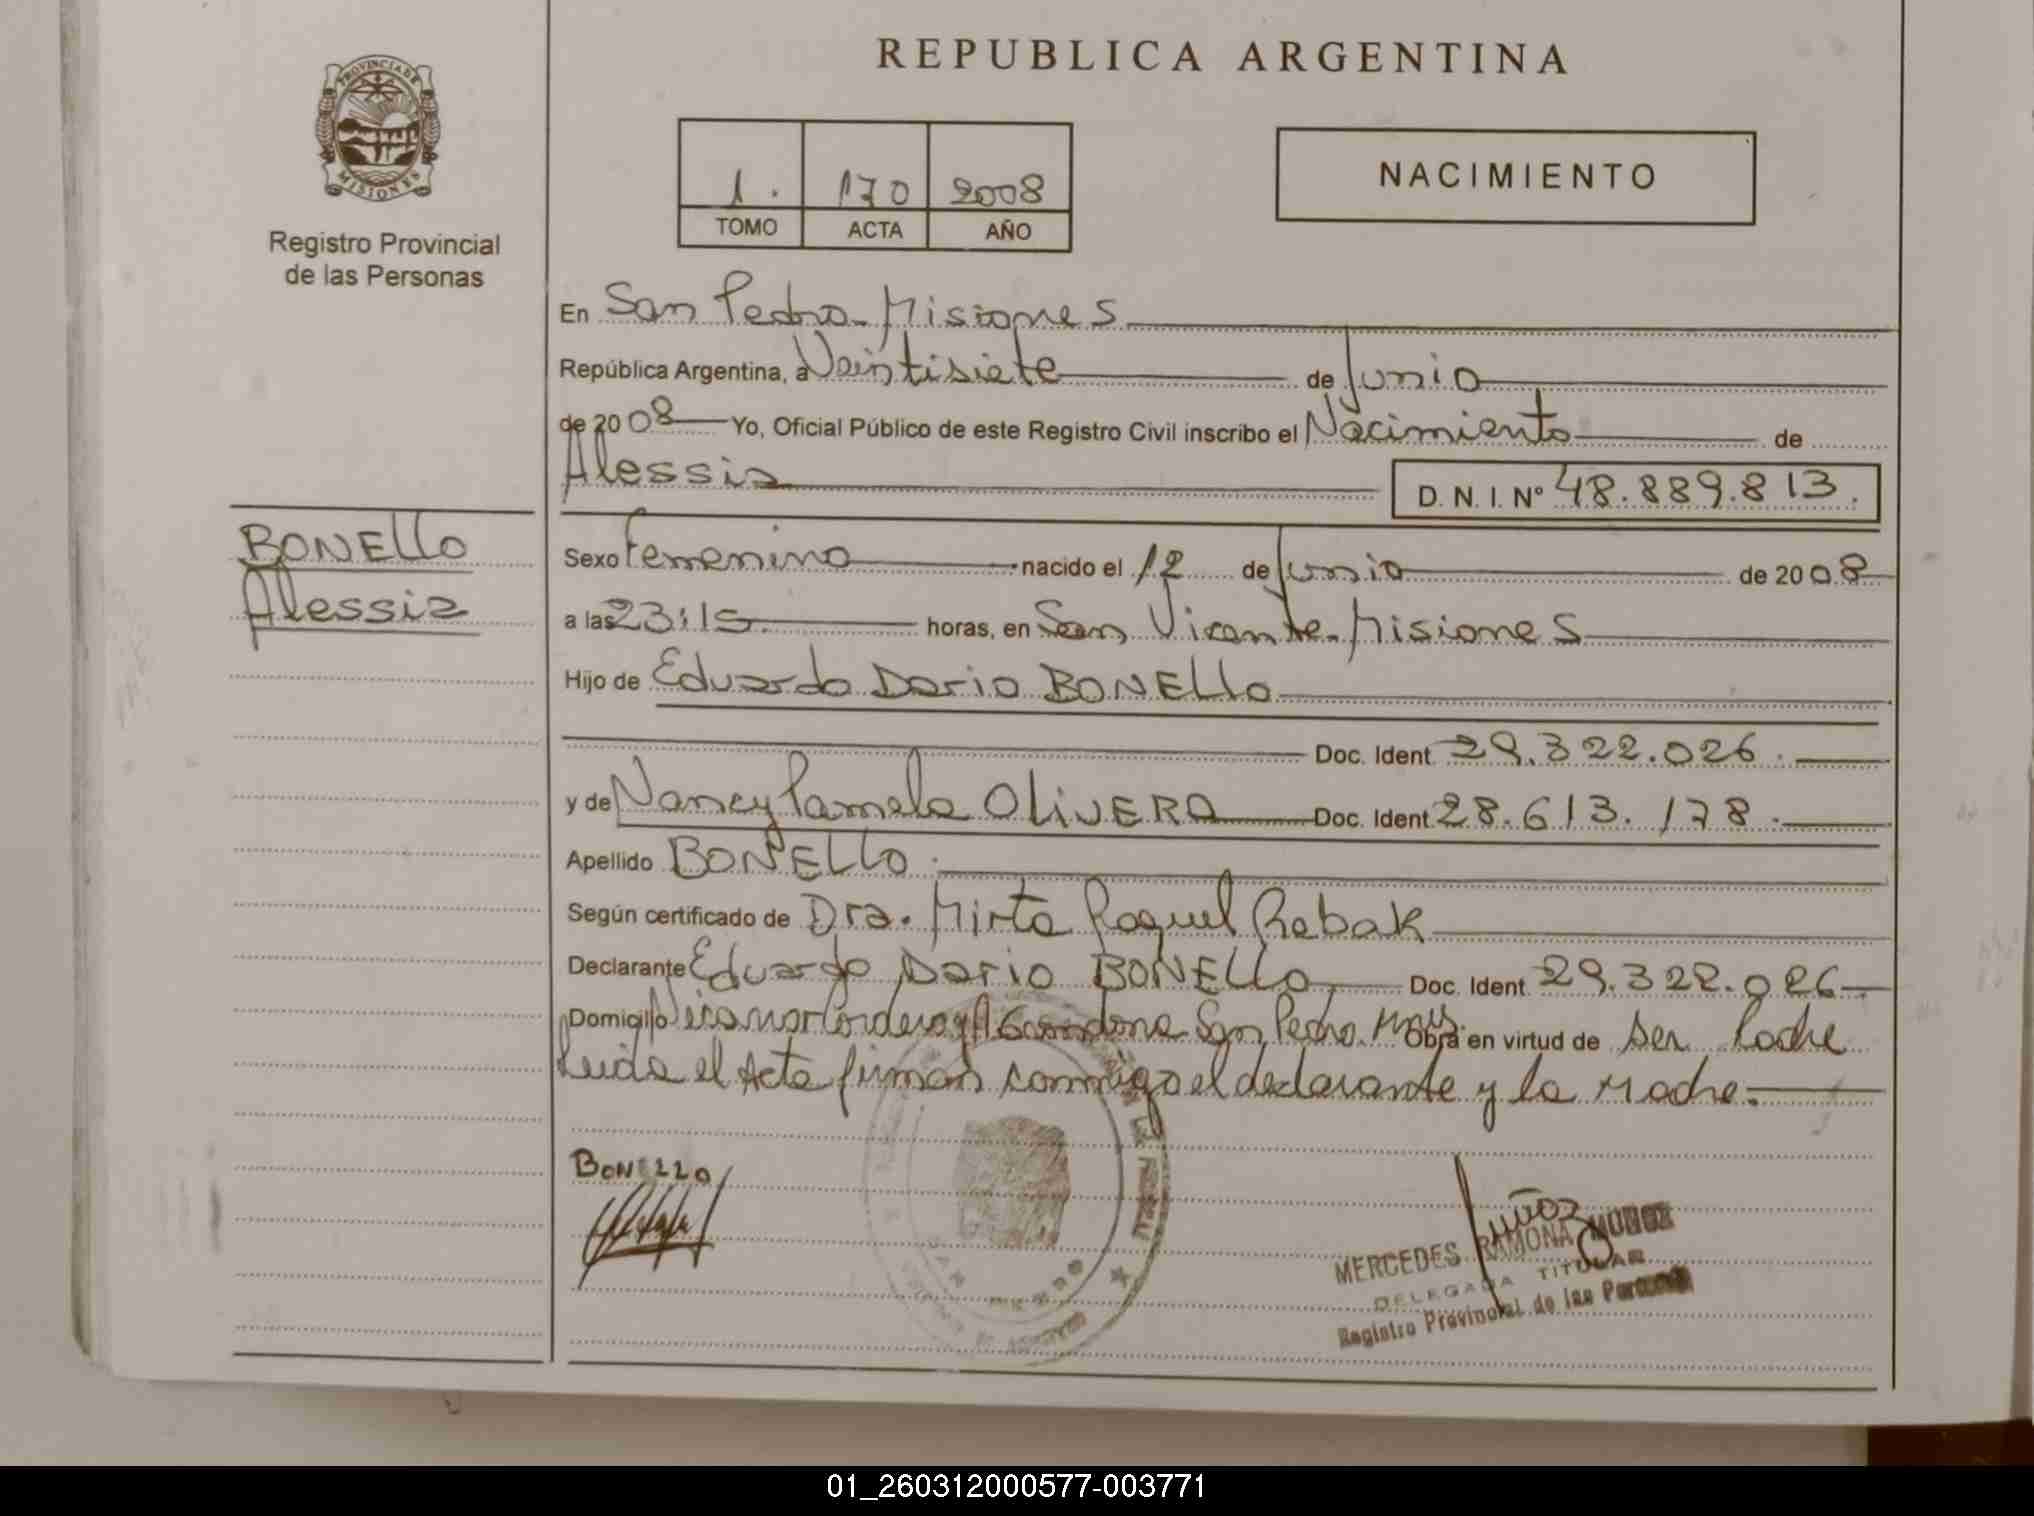 REPUBLICA ARGENTINA
PROVINCIA DE
MISIONES
Registro Provincial
de las Personas
1. 170 2008
TOMO ACTA AÑO
NACIMIENTO
En San Pedro-Misiones
República Argentina, a Veintisiete de Junio
de 2008 Yo, Oficial Público de este Registro Civil inscribo el Nacimiento de
Alessia D. N. I. Nº 48.889.813.
BONELLO
Alessia
Sexo Femenino nacido el 12 de Junio de 2008
a las 23:15 horas, en San Vicente-Misiones
Hijo de Eduardo Dario BONELLO
Doc. Ident. 29.322.026.
y de Nancy Pamela OLIVERA Doc. Ident. 28.613.178.
Apellido BONELLO.
Según certificado de Dra. Mirta Raquel Rebak
Declarante Eduardo Dario BONELLO Doc. Ident. 29.322.026
Domicilio Nicanor Cordero y San Pedro. Mnes. Obra en virtud de ser Padre
Leida el Acta firman conmigo el declarante y la Madre.
BONELLO
MUÑOZ
MERCEDES RAMONA MUÑOZ
DELEGADA TITULAR
Registro Provincial de las Personas
SAN PEDRO
01_260312000577-003771